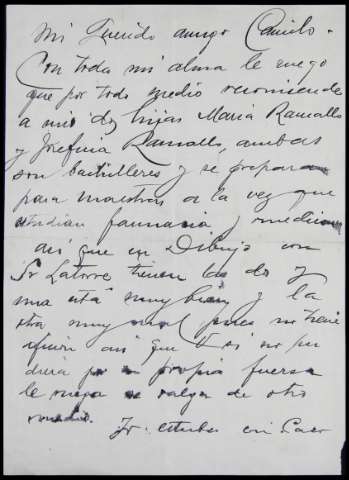 Mi Querido amigo Camilo.
Con toda mi alma le ruego
que por todo medio recomiende
a mis dos hijas Maria Ramallo
y Josefina Ramallo, ambas
son bachilleres y se preparan
para maestras a la vez que
estudian farmacia y medicina
así que en Dibujo con
Sr Latorre tienen las dos y
una está muy bien y la
otra muy mal pues no tiene
así que si no pu
diera por su propia fuerza
le ruego se valga de otro
medio.